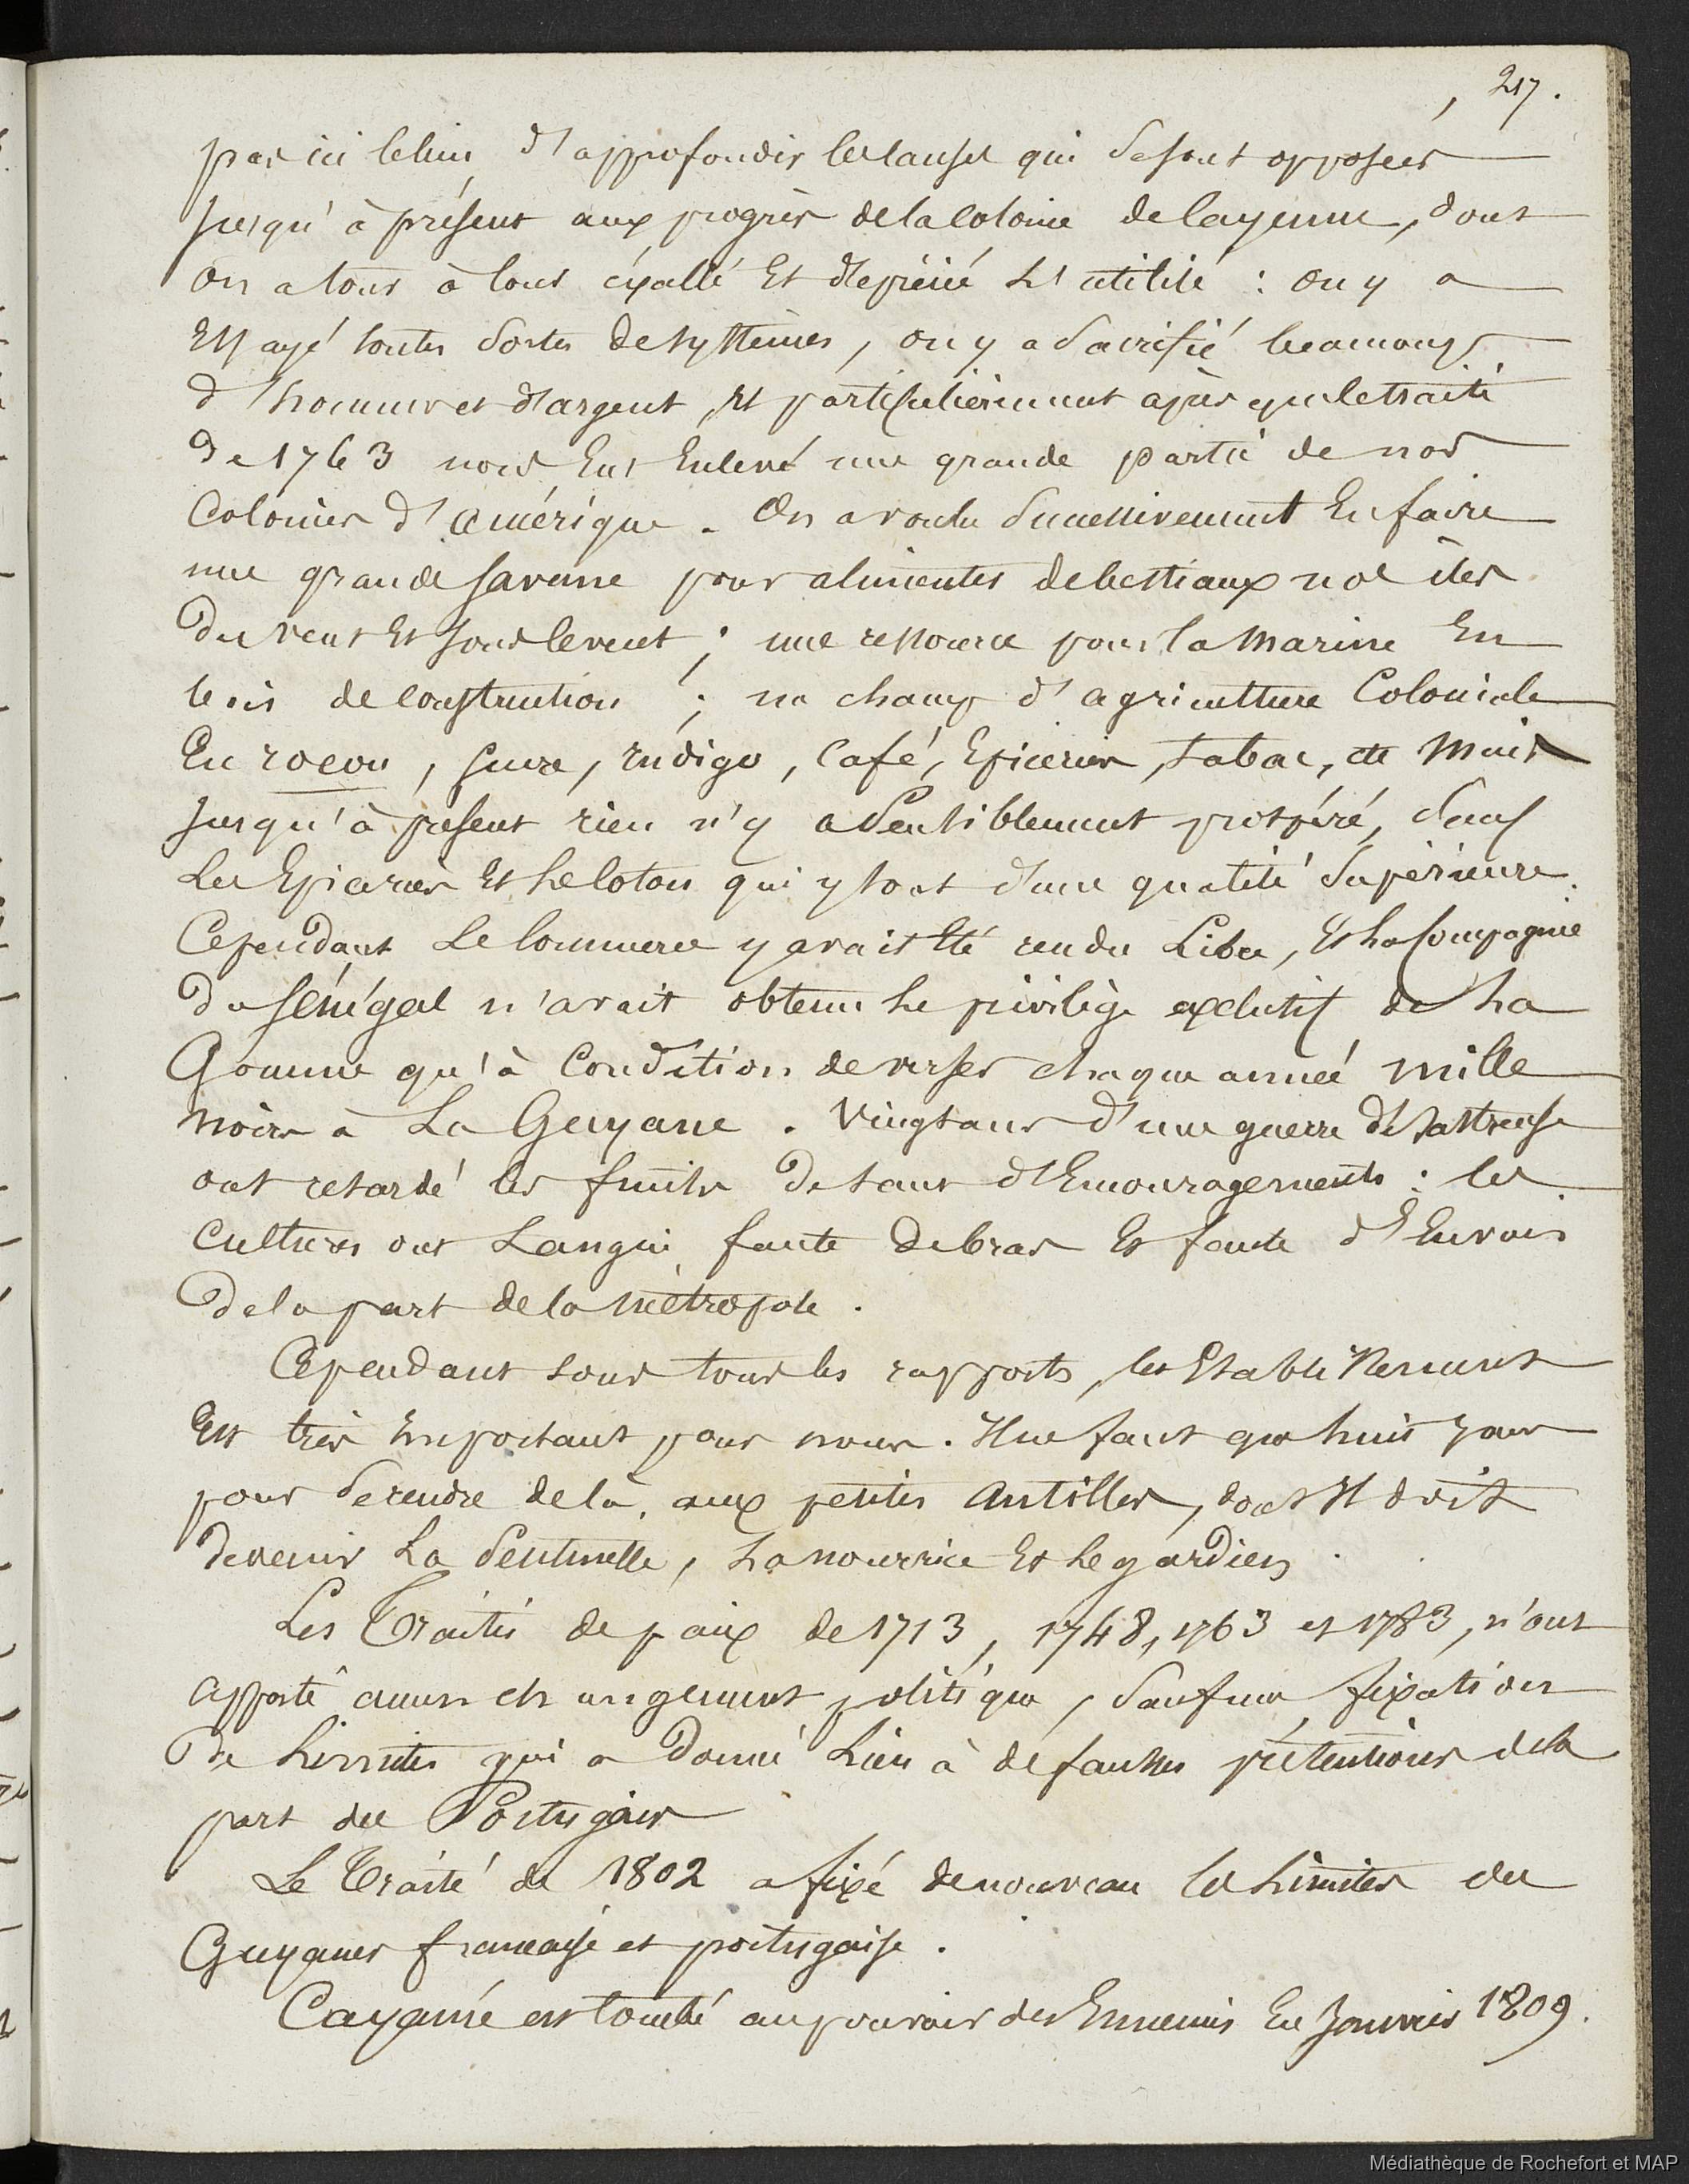 217.
pas ici le lieu d'approfondir les causes qui se sont opposées
jusqu'à présent aux progrès de la Colonie de Cayenne, dont
on a tour à tour éxalté Et déprécié L'utilité : on y a
Essayé toutes sortes de systèmes, on y a sacrifié beaucoup
d'hommes et d'argent, Et particulièrement après que le traité
de 1763 nous Eut Enlevé une grande partie de nos
Colonies d'amérique. On a voulu successivement En faire
une grande savane pour alimenter de bestiaux nos îles
du vent Et sous le vent ; une ressource pour la Marine En
bois de construction ; un champ d'agriculture Coloniale
En rocou, sucre, indigo, Café, Epiceries, tabac, etc Mais
jusqu'à présent rien n'y a sensiblement prospéré, sauf
Les Epiceries Et Le Coton qui y sont d'une qualité supérieure.
Cependant Le Commerce y avait Eté rendu Libre, Et La Compagnie
du Sénégal n'avait obtenu Le privilège exclusif de La
Gomme qu'à Condition de verser chaque année mille
noirs à La Guyane. Vingt ans d'une guerre désastreuse
ont retardé les fruits de tant d'Encouragements : les
Cultures ont Langui faute de bras Et faute d'Envois
de la part de la métropole.
Cependant sous tous les rapports, cet Etablissement
Est très Important pour nous. Il ne faut que huit jours
pour se rendre de là, aux petites Antilles, dont Il doit
devenir La Sentinelle, La nourrice Et Le gardien.
Les Traités de paix de 1713, 1748, 1763 et 1783, n'ont
apporté aucun changement politique, sauf une fixation
de Limites qui a donné Lieu à de fausses prétentions de la
part des Portugais
Le Traité de 1802 a fixé de nouveau les Limites des
Guyanes française et portugaise.
Cayenne est tombé au pouvoir des Ennemis En Janvier 1809.
Médiathèque de Rochefort et MAP